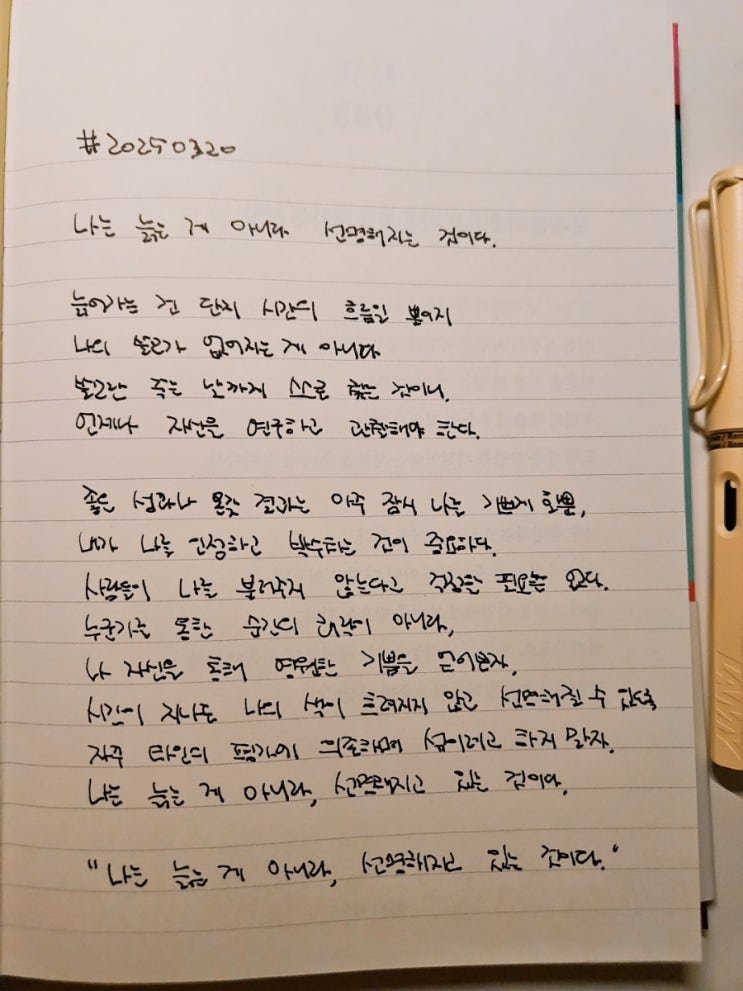 #20250320
나는 늙는 게 아니라 선명해지는 것이다.
늙어가는 건 단지 시간의 흐름일 뿐이지
나의 쓸모가 없어지는 게 아니다
쓸모란 죽는 날까지 스스로 찾는 것이니,
언제나 자신을 연구하고 관찰해야 한다.
좋은 성과나 온갖 결과는 아주 잠시 나를 기쁘게 할뿐,
내가 나를 인정하고 박수치는 것이 중요하다.
사람들이 나를 불러주지 않는다고 걱정할 필요는 없다.
누군가를 통한 순간의 쾌락이 아니라,
나 자신을 통해 영원한 기쁨을 얻어보자,
시간이 지나도 나의 색이 흐려지지 않고 선명해질 수 있도록
자꾸 타인의 평가에 의존하며 섞이려고 하지 말자.
나는 늙는 게 아니라, 선명해지고 있는 것이다.
"나는 늙는 게 아니라, 선명해지고 있는 것이다."
LAMY